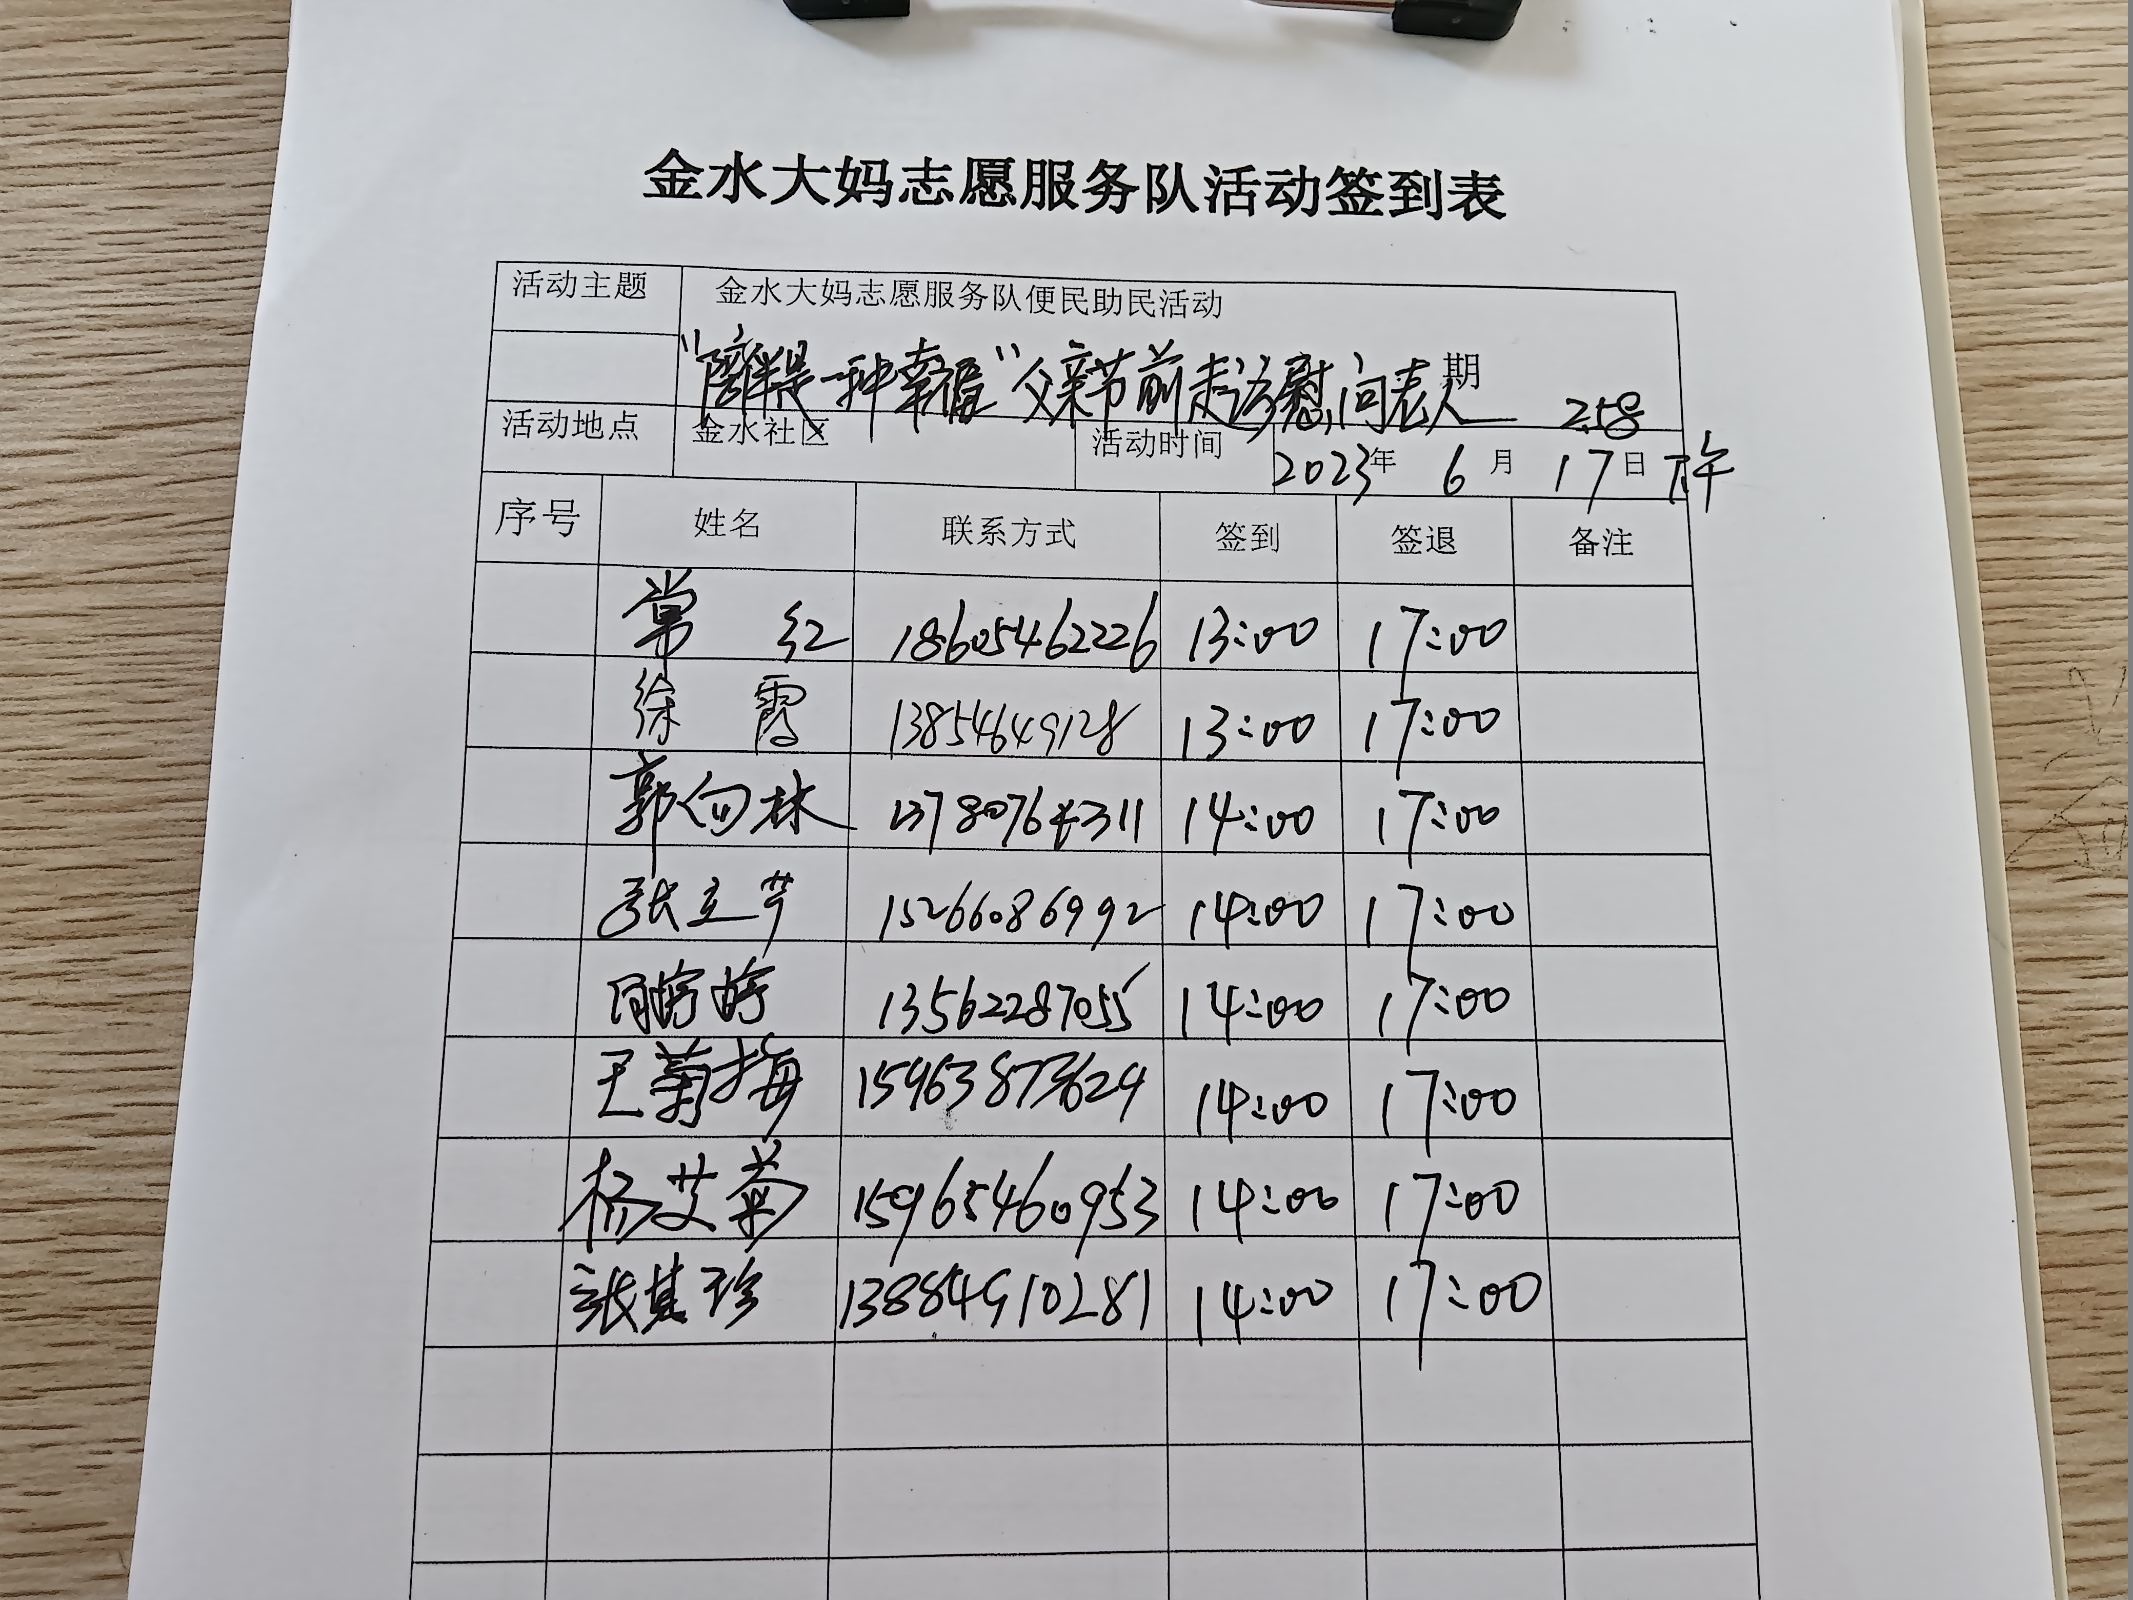 金水大妈志愿服务队活动签到表
活动主题 金水大妈志愿服务队便民助民活动
"陪伴是一种幸福"父亲节前走访慰问老人 期 258
活动地点 金水社区 活动时间 2023年 6月 17日 下午
序号 姓名 联系方式 签到 签退 备注
常红 18605462226 13:00 17:00
徐霞 13854649128 13:00 17:00
郭向林 14:00 17:00
张立芹 15266086992 14:00 17:00
周婷婷 13562287055 14:00 17:00
王菊梅 15963873629 14:00 17:00
杨艾菊 15965460953 14:00 17:00
张其珍 13884910281 14:00 17:00